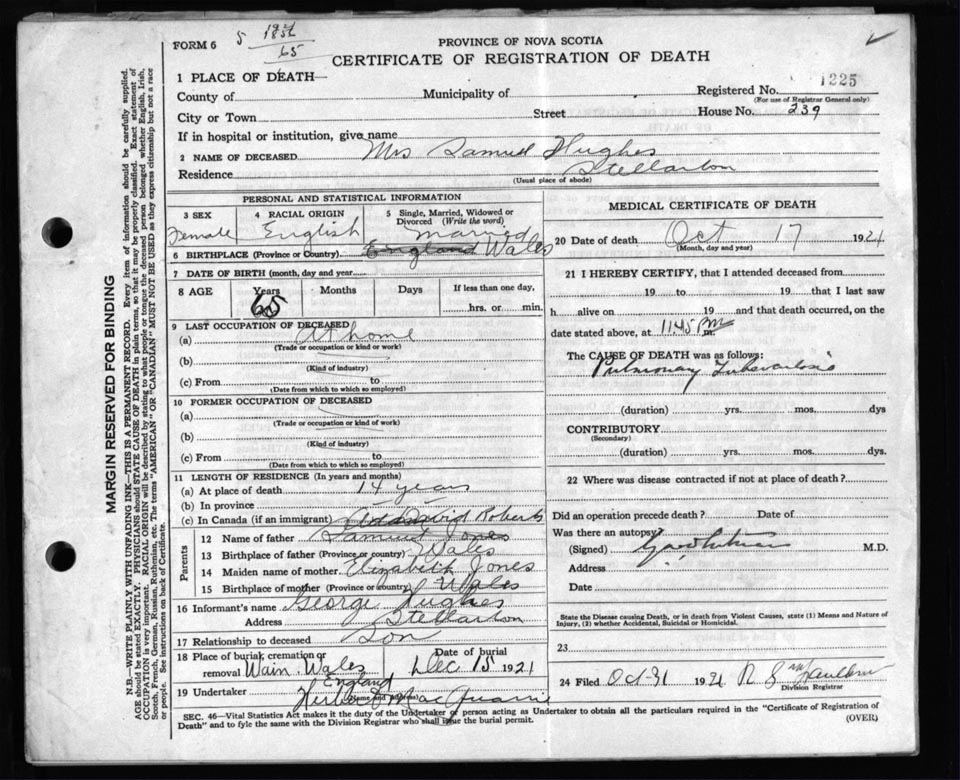 FORM 6
5 1856/65
PROVINCE OF NOVA SCOTIA
CERTIFICATE OF REGISTRATION OF DEATH
1 PLACE OF DEATH—
1225
County of Municipality of Registered No.
(For use of Registrar General only)
City or Town Street House No. 239
If in hospital or institution, give name
2 NAME OF DECEASED Mrs Samuel Hughes
Residence Stellarton
(Usual place of abode)
PERSONAL AND STATISTICAL INFORMATION
3 SEX 4 RACIAL ORIGIN 5 Single, Married, Widowed or Divorced (Write the word)
Female English Married
6 BIRTHPLACE (Province or Country) England Wales
7 DATE OF BIRTH (month, day and year)
8 AGE Years Months Days If less than one day,
65 hrs. or min.
9 LAST OCCUPATION OF DECEASED
(a) At home
(Trade or occupation or kind or work)
(b)
(Kind of industry)
(c) From to
(Date from which to which so employed)
10 FORMER OCCUPATION OF DECEASED
(a)
(Trade or occupation or kind of work)
(b)
(Kind of industry)
(c) From to
(Date from which to which so employed)
11 LENGTH OF RESIDENCE (In years and months)
(a) At place of death 14 years
(b) In province
(c) In Canada (if an immigrant) David Roberts
Parents
12 Name of father Samuel Jones
13 Birthplace of father (Province or country) Wales
14 Maiden name of mother Elizabeth Jones
15 Birthplace of mother (Province or country) Wales
16 Informant's name George Hughes
Address Stellarton
17 Relationship to deceased Son
18 Place of burial, cremation or removal Date of burial
Wain Wales Dec 15 1921
England
19 Undertaker
(Name and address)
MEDICAL CERTIFICATE OF DEATH
20 Date of death Oct 17 1921
(Month, day and year)
21 I HEREBY CERTIFY, that I attended deceased from
19 to 19 that I last saw
h alive on 19 and that death occurred, on
date stated above, at 11.45 PM m.
The CAUSE OF DEATH was as follows:
Pulmonary Tuberculosis
(duration) yrs. mos. dys
CONTRIBUTORY
(Secondary)
(duration) yrs. mos. dys
22 Where was disease contracted if not at place of death?
Did an operation precede death? Date of
Was there an autopsy?
(Signed) M.D.
Address
Date
State the Disease causing Death, or in death from Violent Causes, state (1) Means and Nature of
Injury, (2) whether Accidental, Suicidal or Homicidal.
23
24 Filed Oct 31 1921
Division Registrar
SEC. 46—Vital Statistics Act makes it the duty of the Undertaker or person acting as Undertaker to obtain all the particulars required in the "Certificate of Registration of
Death" and to fyle the same with the Division Registrar who shall issue the burial permit.
(OVER)
MARGIN RESERVED FOR BINDING
N.B.—WRITE PLAINLY WITH UNFADING INK—THIS IS A PERMANENT RECORD. Every item of information should be carefully supplied.
AGE should be stated EXACTLY. PHYSICIANS should STATE CAUSE OF DEATH in plain terms, so that it may be properly classified. Exact statement of
OCCUPATION is very important. RACIAL ORIGIN will be described by stating to what people or tongue the deceased person belonged whether English, Irish,
Scotch, French, German, Russian, Ruthenian, etc. The terms "AMERICAN" OR "CANADIAN" MUST NOT BE USED as they express citizenship but not a race
or people. See instructions on back of Certificate.